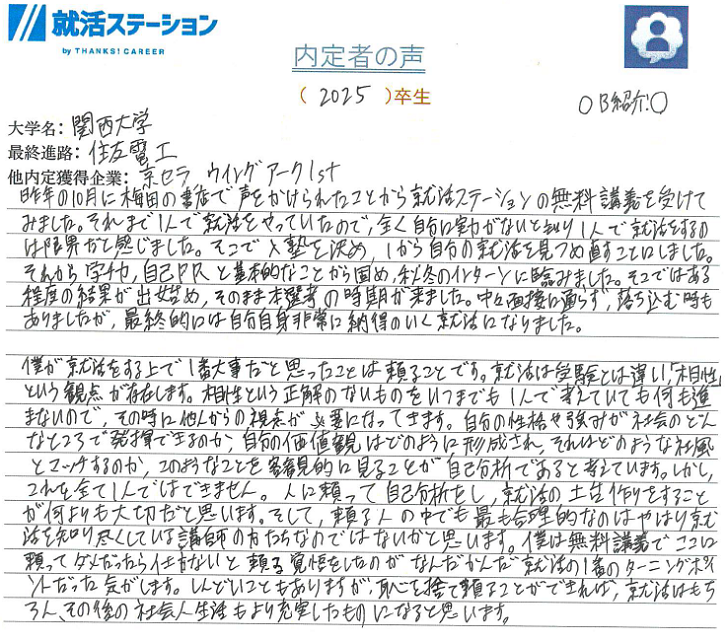 就活ステーション
by THANKS! CAREER
内定者の声
(2025)卒生
○B紹介○
大学名: 関西大学
最終進路: 住友電工
他内定獲得企業: 京セラ ウイングアーク1st
昨年の10月に梅田の書店で声をかけられたことから就活ステーションの無料講義を受けて
みました。それまで1人で就活をやっていたので、全く自分に実力がないと知り1人で就活をするの
は限界だと感じました。そこで入塾を決め、1から自分の就活を見つめ直すことにしました。
それから学チカ、自己PRと基本的なことから固め、秋冬のインターンに臨みました。そこではある
程度の結果が出始め、そのまま本選考の時期が来ました。中々面接に通らず、落ち込む時も
ありましたが、最終的には自分自身非常に納得のいく就活になりました。
僕が就活をする上で1番大事だと思ったことは頼ることです。就活は受験とは違い、「相性」
という観点が存在します。相性という正解のないものをいつまでも1人で考えていても何も進
まないので、その時に他人からの視点が必要になってきます。自分の性格や強みが社会のどん
なところで発揮できるのか、自分の価値観はどのように形成され、それはどのような社風
とマッチするのか、このようなことを客観的に見ることが自己分析であると考えています。しかし、
これを全て1人ではできません。人に頼って自己分析をし、就活の土台作りをすること
が何よりも大切だと思います。そして、頼る人の中でも最も合理的なのはやはり就
活を知り尽くしている講師の方たちなのではないかと思います。僕は無料講義でここに
頼ってダメだったら仕方ないと頼る覚悟をしたのがなんだかんだ就活の1番のターニングポイ
ントだった気がします。しんどいこともありますが、恥を捨て頼ることができれば、就活はもち
ろん、その後の社会人生活もより充実したものになると思います。